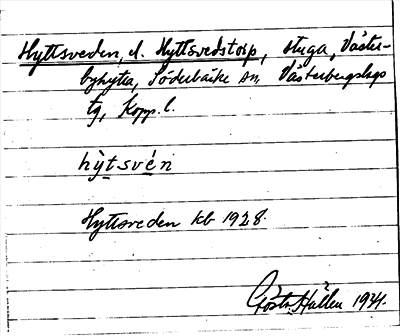 Hyttsveden, el. Hyttsvedstorp, stuga, Väster-
byhytta, Söderbärke sn. Västerbergslags
tg, Kopp. l.
hy̲tsvèn
Hyttsveden kb 1928.
Gösta Hallén 1934.